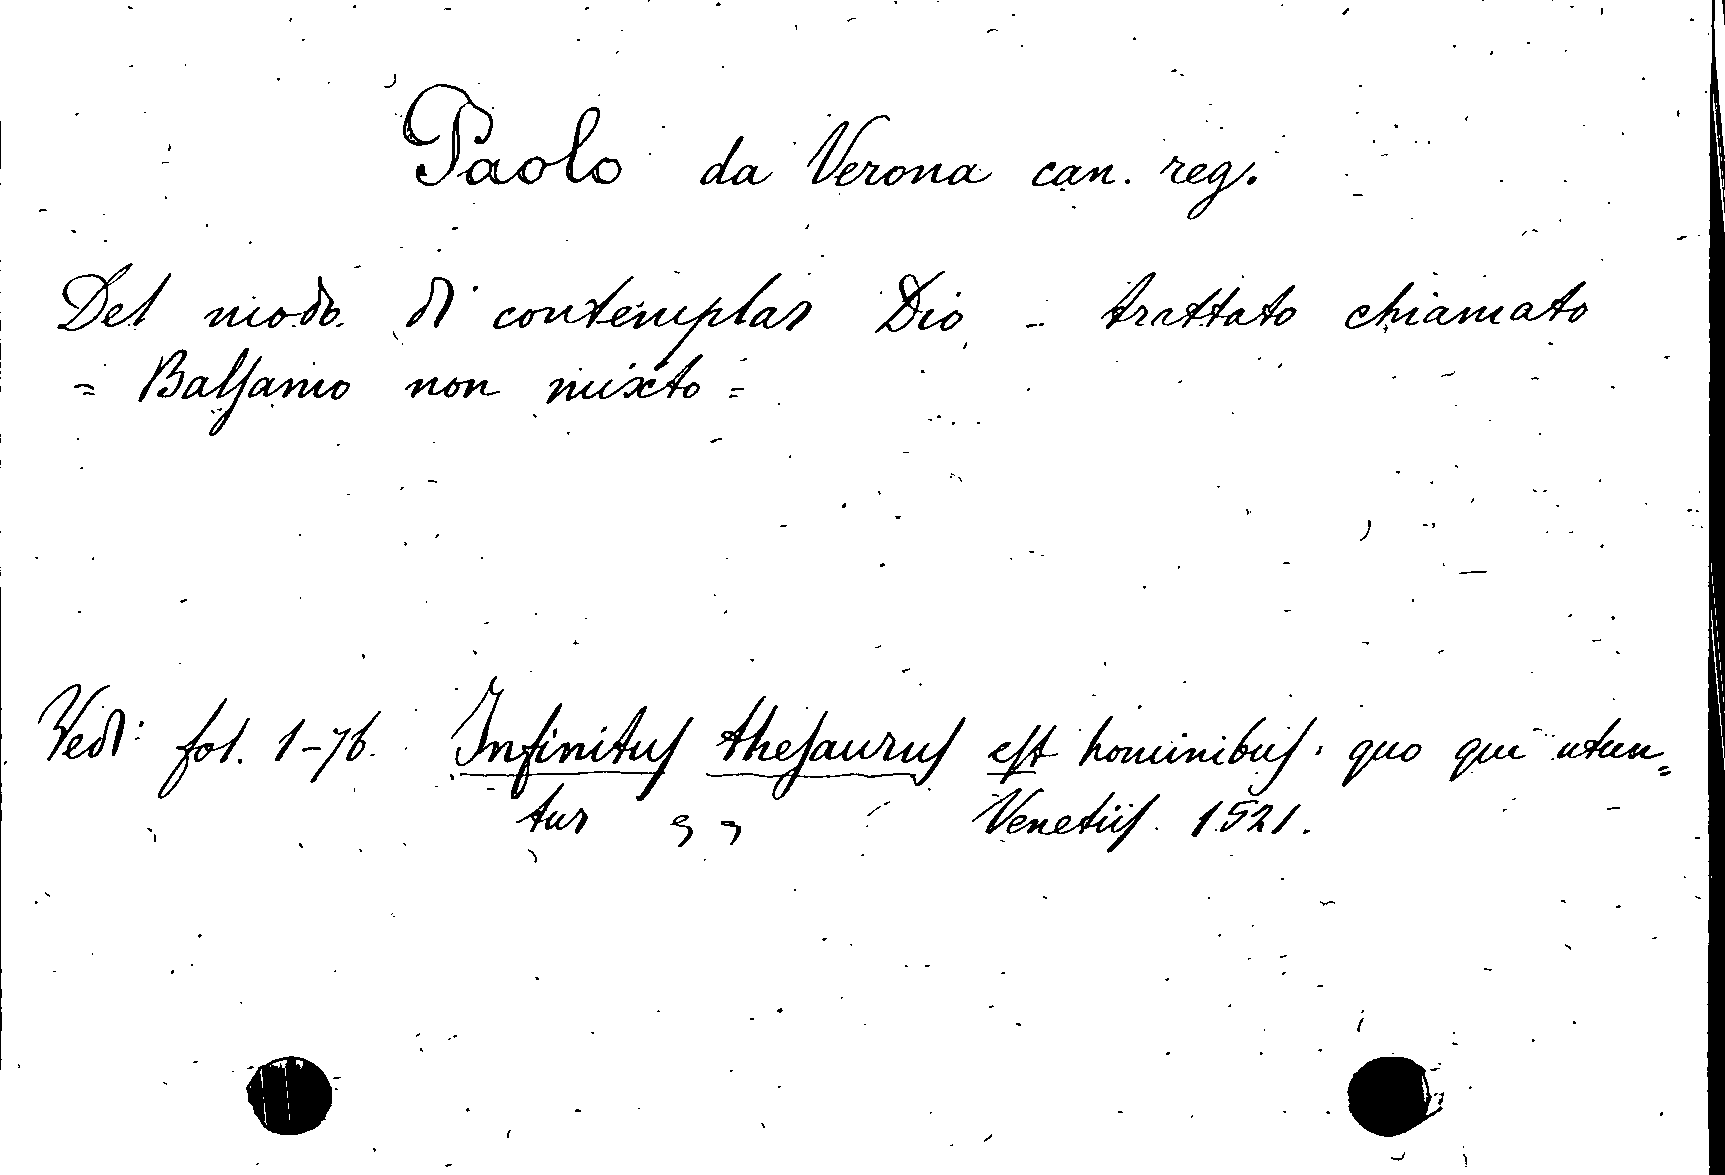 Paolo da Verona can. reg.
Del modo di contemplar Dio - trattato chiamato
= Balsamo non mixto =
Vedi: fol. 1-76. Infinitus thesaurus est hominibus: quo qui utun=
tur ,, Venetiis 1521.